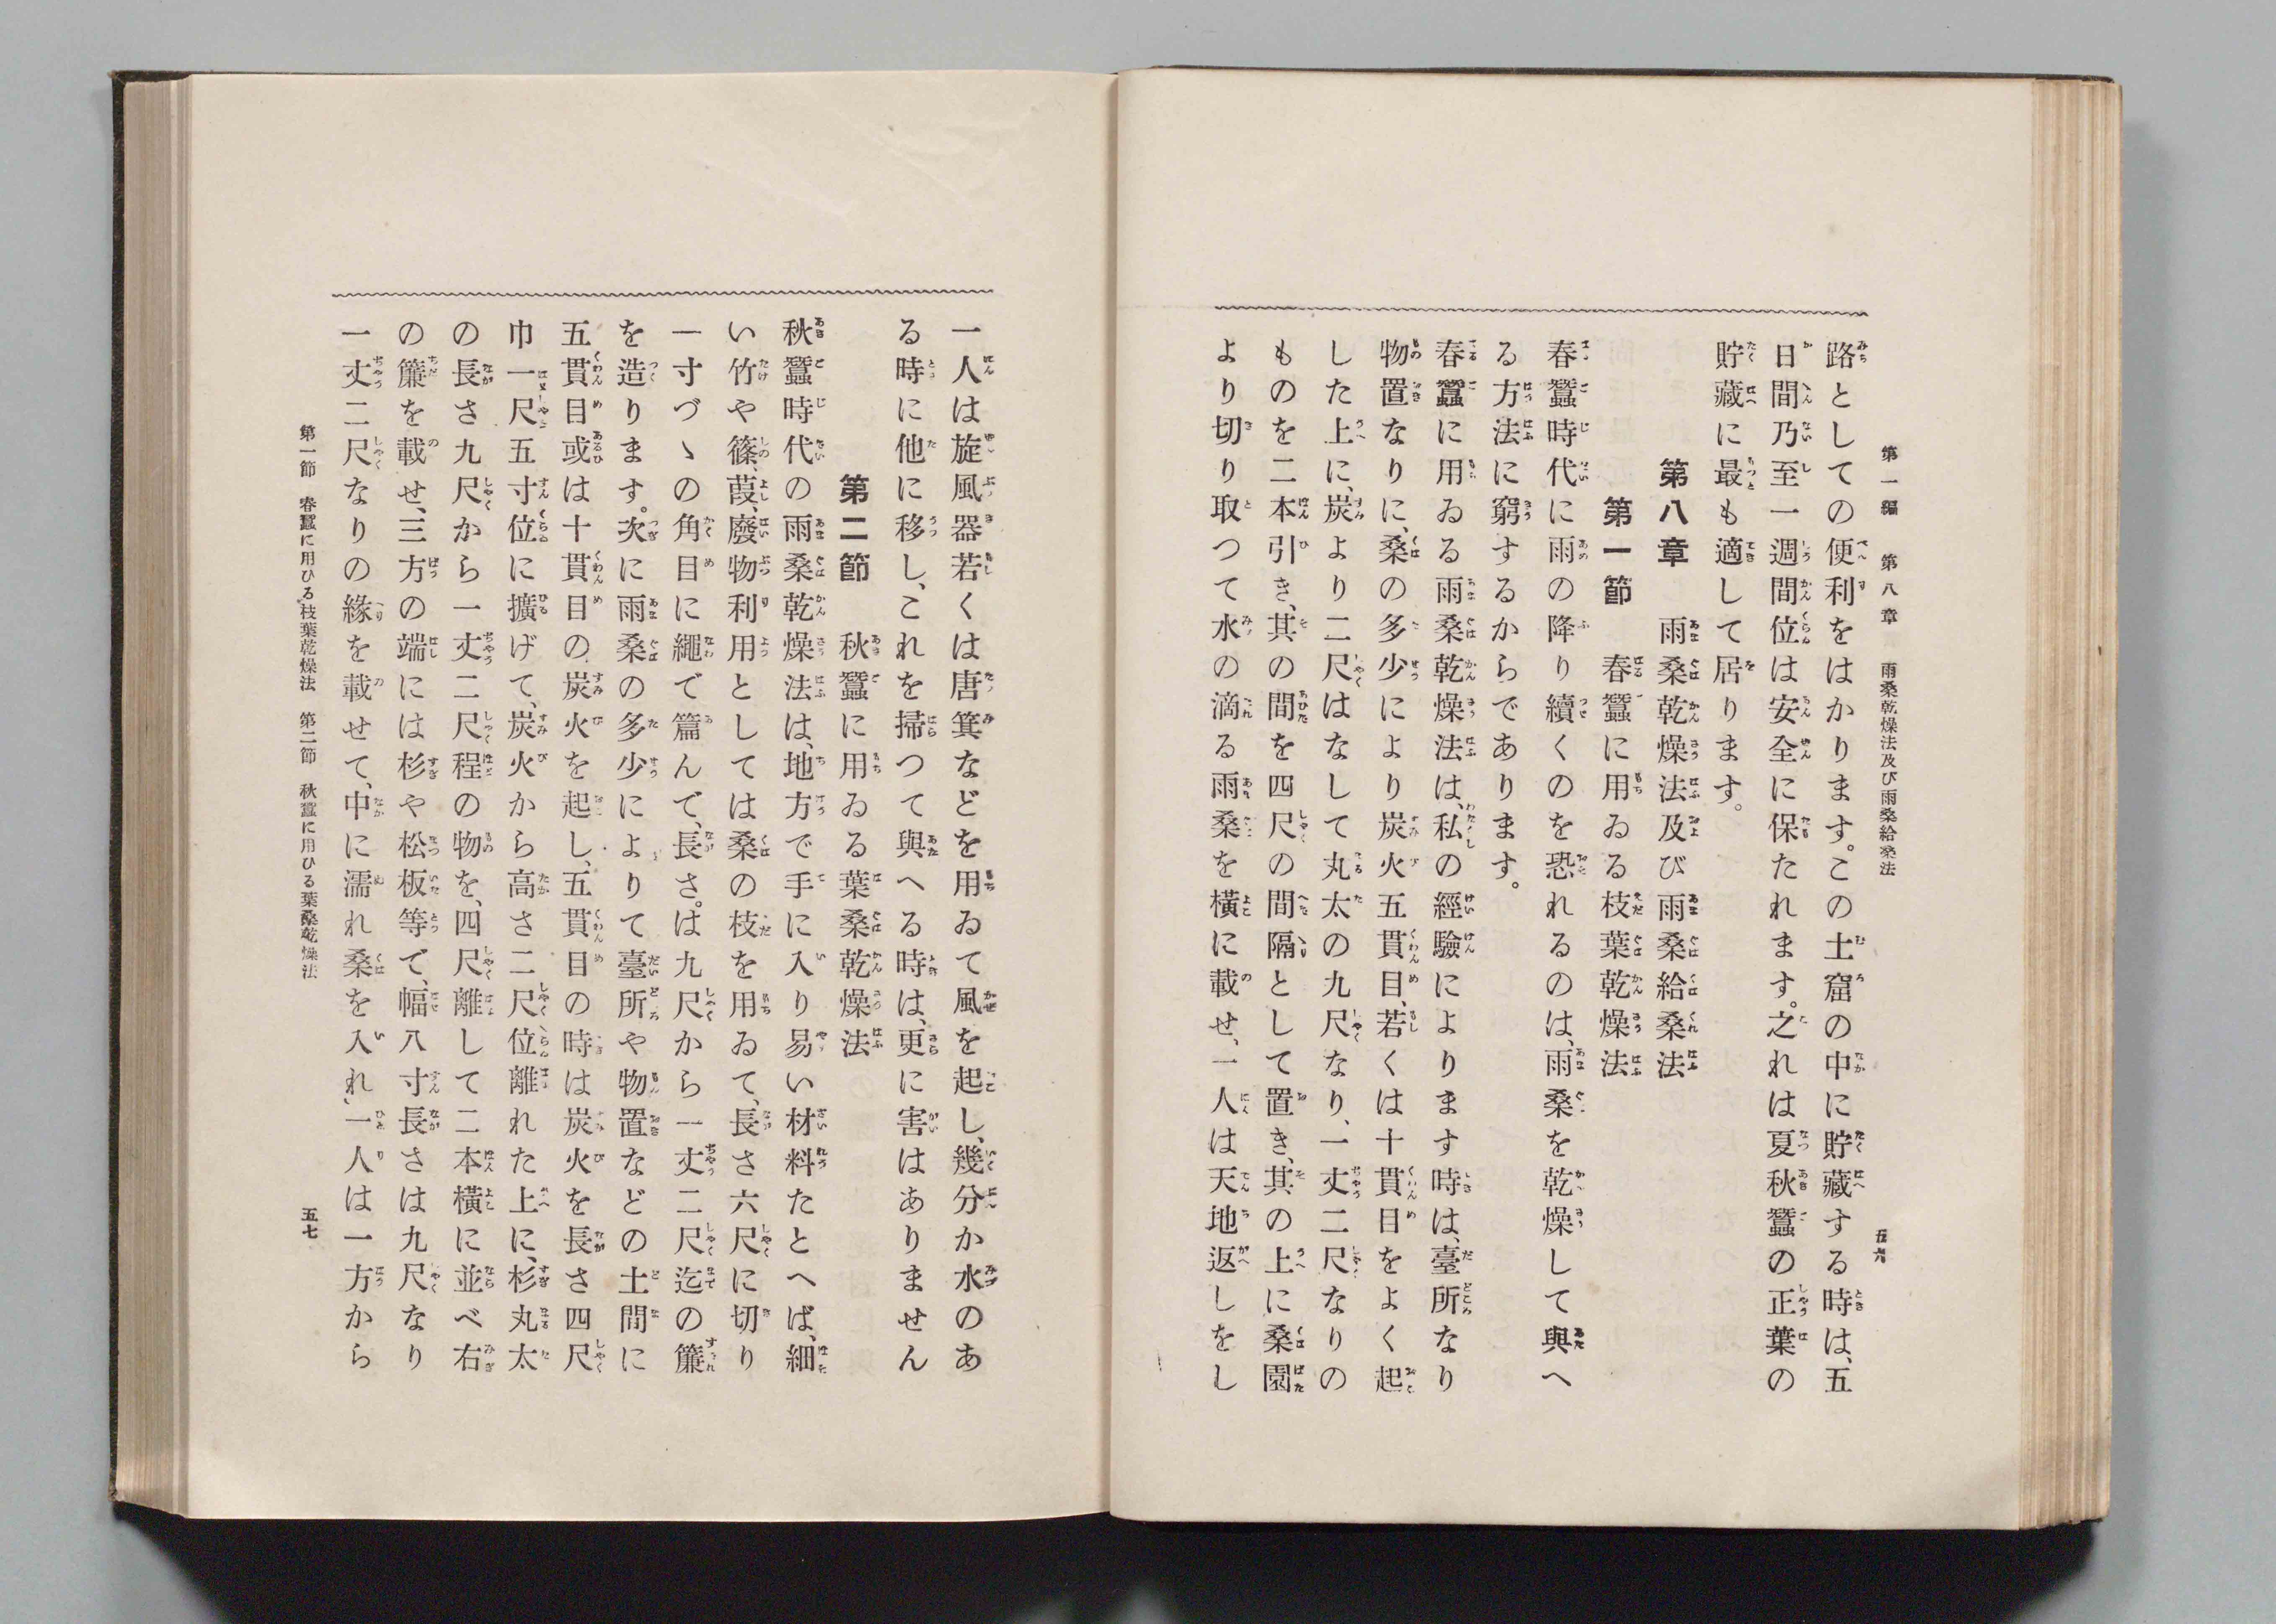 第一編　第八章　雨桑乾燥法及び雨桑給桑法
五六
路としての便利をはかります。この土窟の中に貯藏する時は、五
日間乃至一週間位は安全に保たれます。之れは夏秋蠶の正葉の
貯藏に最も適して居ります。
第八章　雨桑乾燥法及び雨桑給桑法
第一節　春蠶に用ゐる枝葉乾燥法
春蠶時代に雨の降り續くのを恐れるのは、雨桑を乾燥して與へ
る方法に窮するからであります。
春蠶に用ゐる雨桑乾燥法は、私の經驗によります時は、臺所なり
物置なりに、桑の多少により炭火五貫目、若くは十貫目をよく起
した上に、炭より二尺はなして丸太の九尺なり、一丈二尺なりの
ものを二本引き、其の間を四尺の間隔として置き、其の上に桑園
より切り取つて水の滴る雨桑を橫に載せ、一人は天地返しをし
一人は旋風器若くは唐箕などを用ゐて風を起し、幾分か水のあ
る時に他に移し、これを掃つて與へる時は、更に害はありません
第二節　秋蠶に用ゐる葉桑乾燥法
秋蠶時代の雨桑乾燥法は、地方で手に入り易い材料たとへば、細
い竹や篠、葭、廢物利用としては桑の枝を用ゐて、長さ六尺に切り
一寸づゝの角目に繩で篇んで、長さ。は九尺から一丈二尺迄の簾
を造ります。次に雨桑の多少によりて臺所や物置などの土間に
五貫目或は十貫目の炭火を起し、五貫目の時は炭火を長さ四尺
巾一尺五寸位に擴げて、炭火から高さ二尺位離れた上に、杉丸太
の長さ九尺から一丈二尺程の物を、四尺離して二本橫に並べ右
の簾を載せ、三方の端には杉や松板等で、幅八寸長さは九尺なり
一丈二尺なりの緣を載せて、中に濡れ桑を入れ、一人は一方から
第一節　春蠶に用ひる枝葉乾燥法　第二節　秋蠶に用ひる葉桑乾燥法
五七